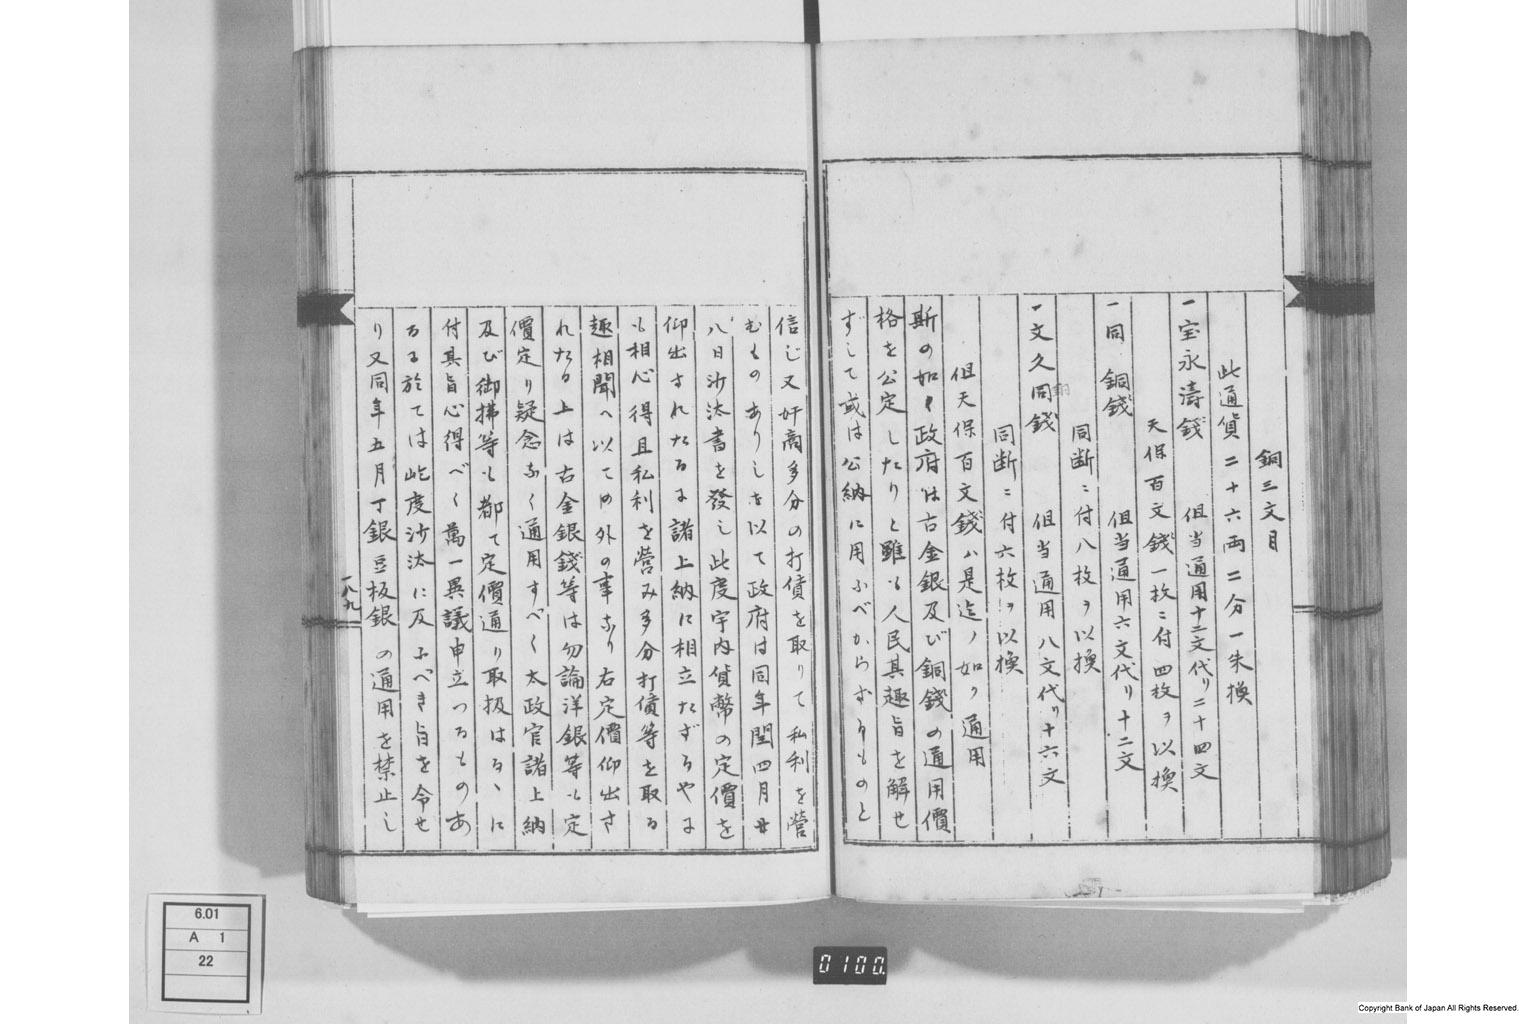 銅三文目
此通貨二十六両二分一朱換
一宝永濤銭　但当通用十二文代リ二十四文
天保百文銭一枚ニ付四枚ヲ以換
一同　銅銭　但当通用六文代リ十二文
同断ニ付八枚ヲ以換
一文久同銭　但当通用八文代リ十六文
同断ニ付六枚ヲ以換
但天保百文銭ハ是迄ノ如ク通用
斯の如く政府は古金銀及び銅銭の通用價
格を公定したりと雖も人民其趣旨を解せ
ずして或は公納に用ふべからずるものと
信じ又奸商多分の打債を取りて私利を営
むものありしを以て政府は同年閏四月廿
八日沙汰書を發し此度宇内貨幣の定價を
仰出されたるに諸上納に相立たずるやに
も相心得且私利を営み多分打債等を取る
趣相聞へ以ての外の事なり右定價仰出さ
れたる上は古金銀銭等は勿論洋銀等も定
價定り疑念なく通用すべく太政官諸上納
及び御拂等も都て定價通り取扱はるゝに
付其旨心得べく萬一異議申立つるものあ
るに於ては此度沙汰に及ふべき旨を令せ
り又同年五月丁銀豆板銀の通用を禁止し
一八九
6.01
A 1
22
0100.
Copyright Bank of Japan All Rights Reserved.